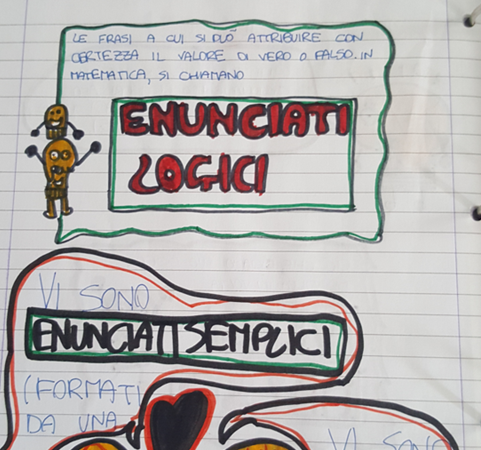 LE FRASI A CUI SI PUÒ ATTRIBUIRE CON
CERTEZZA IL VALORE DI VERO O FALSO. IN
MATEMATICA, SI CHIAMANO
ENUNCIATI
LOGICI
VI SONO
ENUNCIATI SEMPLICI
(FORMATI
DA UNA
VI SONO